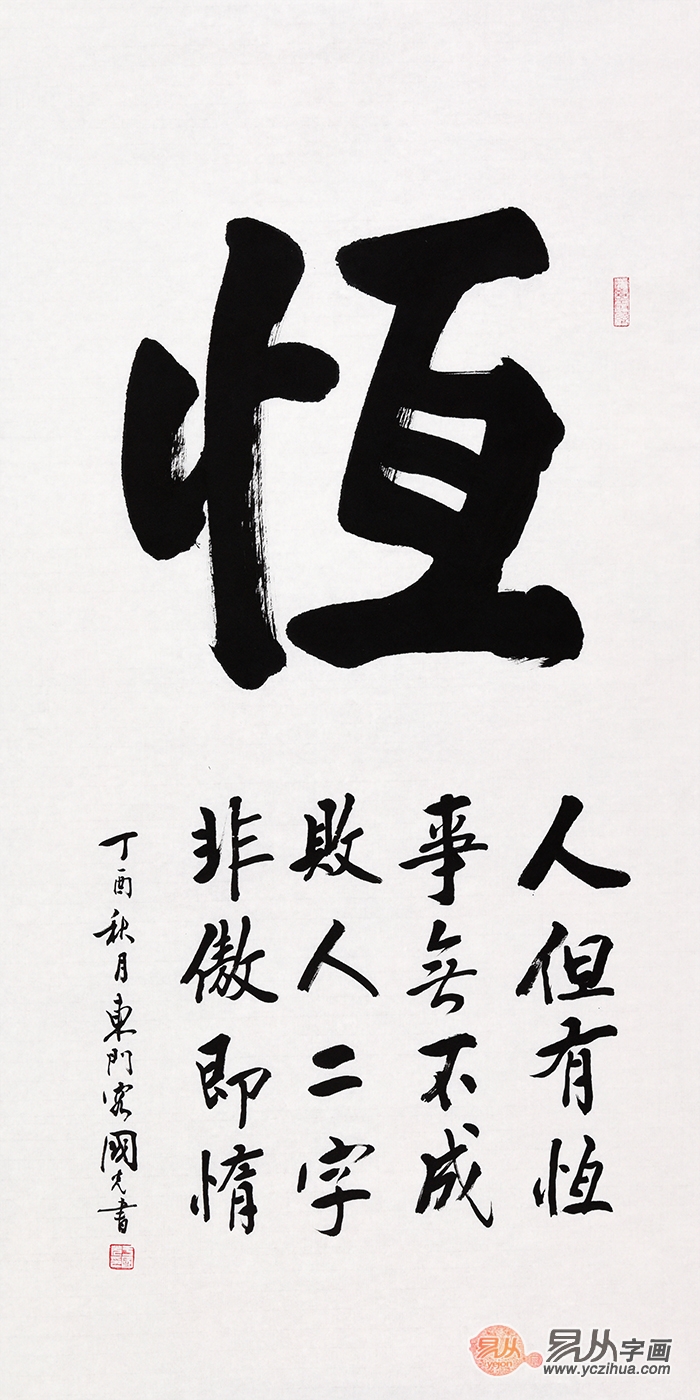 恆
人但有恆
事無不成
敗人二字
非傲即惰
丁酉秋月東門客國光書
易从字画
www.yczihua.com
yi con